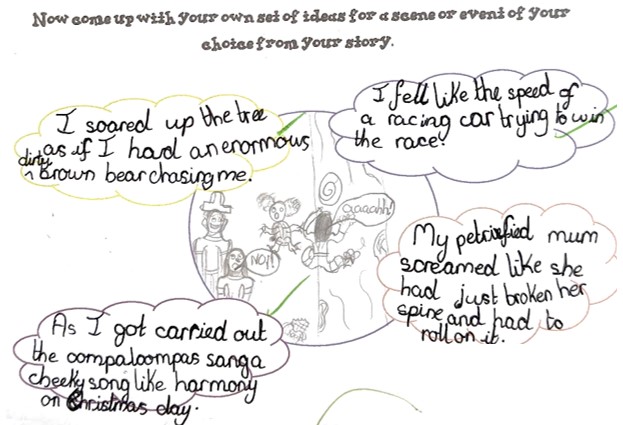 Now come up with your own set of ideas for a scene or event of your
choice from your story.
I soared up the tree
as if I had an enormous
dirty
^ brown bear chasing me.
I fell like the speed of
a racing car trying to win
the race!
aaaahh!
NO!!
My petrified mum
screamed like she
had just broken her
spine and had to
roll on it.
As I got carried out
the oompaloompas sang a
cheeky song like harmony
on Christmas day.